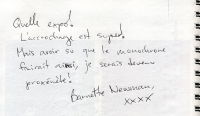 Quelle expo!
L'accrochage est super!
Mais avoir su que le monochrome
fairait ainsi, je serais devenu
proxénète!
Barnette Newman,
xxxx